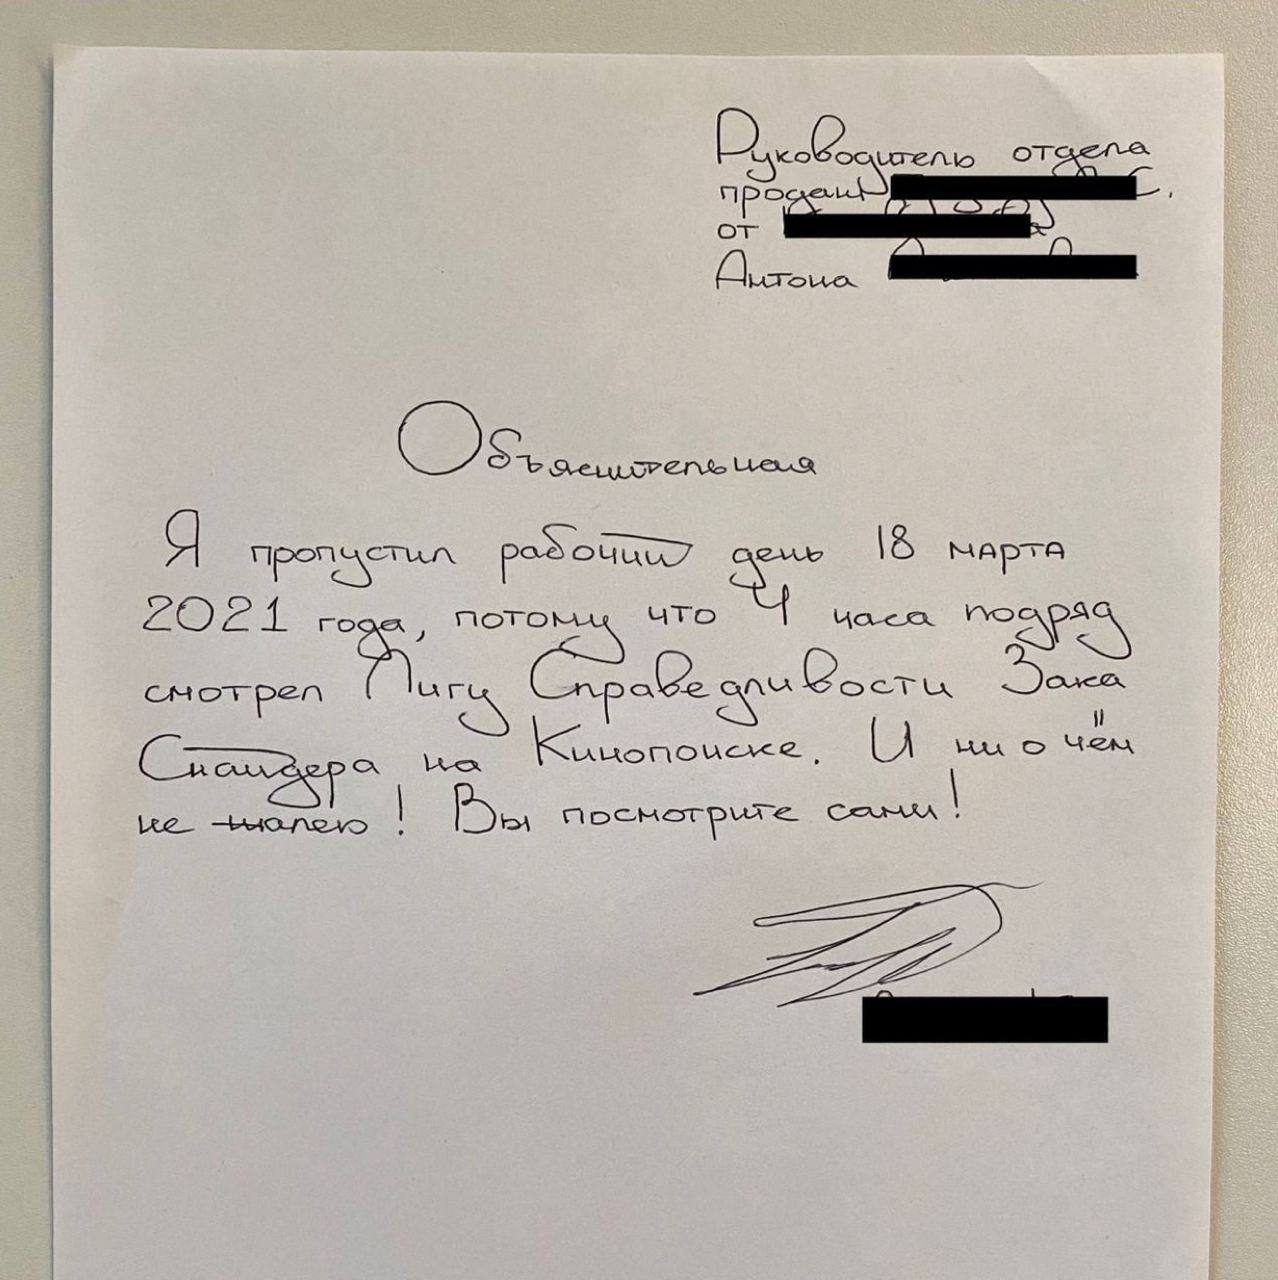 Руководитель отдела
продаж
от
Антона
Объяснительная
Я пропустил рабочий день 18 марта
2021 года, потому что 4 часа подряд
смотрел Лигу Справедливости Зака
Снайдера на Кинопоиске. И ни о чём
не жалею! Вы посмотрите сами!